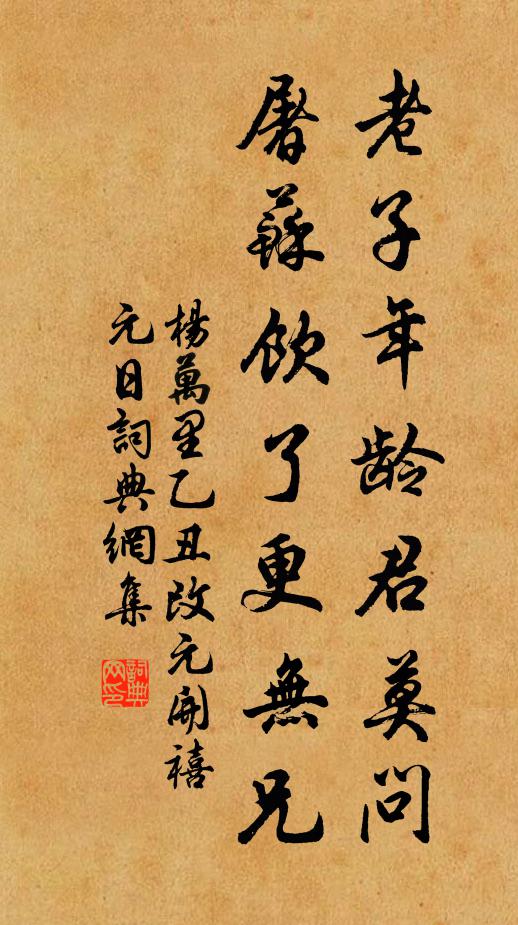 老子年龄君莫问
屠蘇飲了更無兄
楊萬里乙丑改元開禧
元日詞典網集
詞典
网印